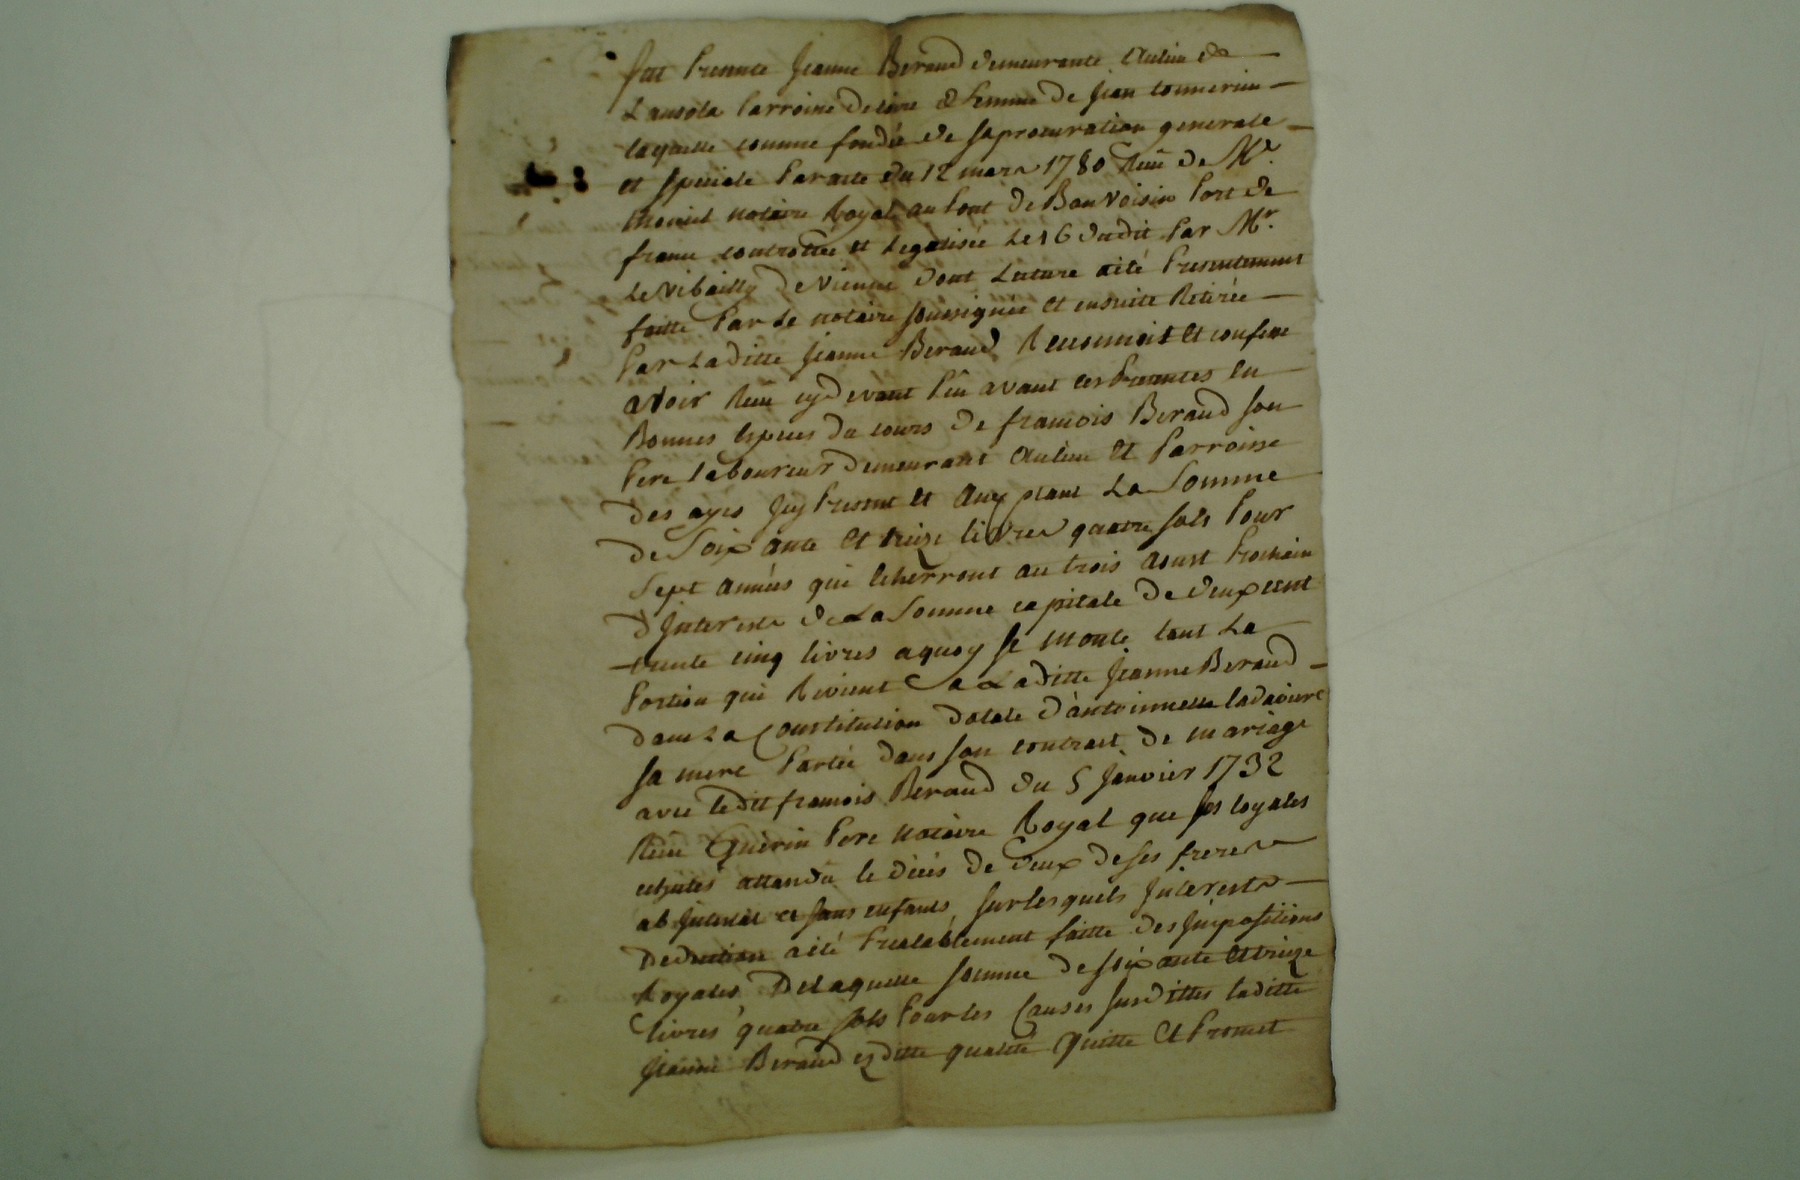 fut presente Jeanne Beraud demeurante au lieu de
Lansola parroisse de femme de Jean
laquelle comme fondée de sa procuration generale
et speciale par acte du 12 mars 1780 Reçu de Me.
notaire Royal au Pont de Beauvoisin Port de
france controllée et Legalisée Le 16 dudit par Mr.
Le Vibailly de Vienne dont Lecture a eté presentement
faitte par Le notaire soussignée et ensuite Retirée
par Laditte Jeanne Beraud Reconnoit et confesse
avoir Reçu cy devant plu avant ces presentes en
Bonnes especes du cours de francois Beraud son
pere laboureur demeurant au lieu et parroisse
des ayes icy present et acceptant La Somme
de Soixante et treize livres quatre sols pour
Sept années qui echerront au trois aoust prochain
d'Interests de La Somme capitale de deux cent
trente cinq livres aquoy se monte tant La
portion qui Revient a Laditte Jeanne Beraud
dans La Constitution dotale d'antoinnette
sa mere portée dans son contract de mariage
avec ledit francois Beraud du 5 Janvier 1732
Reçu Guerin pere notaire Royal que ses loyales
echutes attendu le décés de deux de ses freres
ab intestat et sans enfants, sur lesquels Interests
Deduction a eté prealablement faitte des Impositions
Royales, De laquelle somme de soixante et treize
livres quatre sols pour les Causes susdittes laditte
Jeanne Beraud ezditte qualité quitte et promet